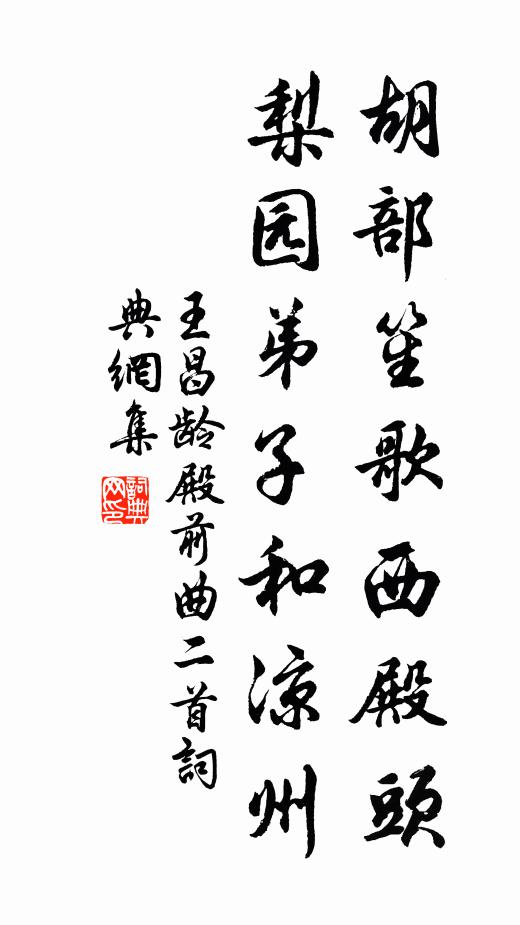 胡部笙歌西殿頭
梨园弟子和凉州
王昌龄殿前曲二首詞
典網集
詞典网印